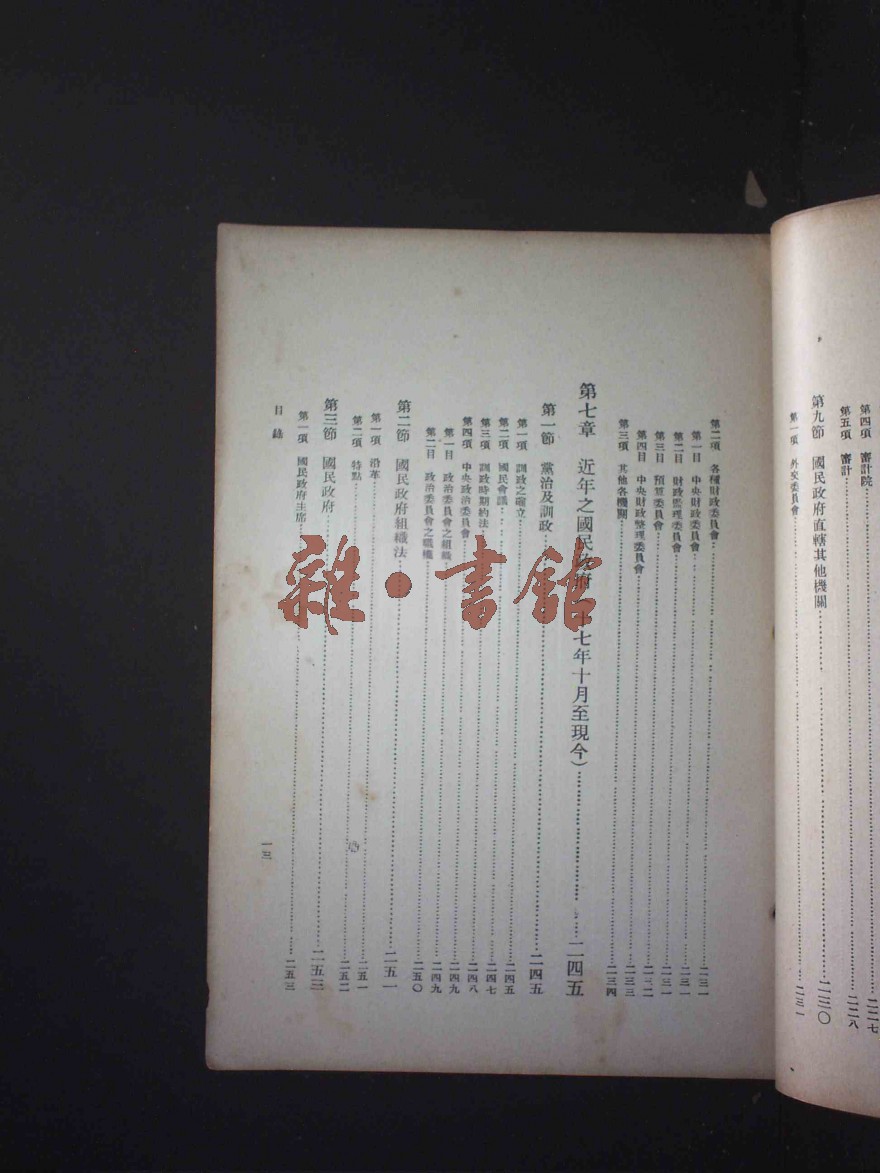 第四項 審計院……二二七
第五項 審計……二二八
第九節 國民政府直轄其他機關……二三〇
第一項 外交委員會……二三一
第二項 各種財政委員會……二三一
第一目 中央財政委員會……二三一
第二目 財政監理委員會……二三一
第三目 預算委員會……二三一
第四目 中央財政整理委員會……二三二
第三項 其他各機關……二三三
二三四
第七章 近年之國民政府 十七年十月至現今）……二四五
第一節 黨治及訓政……二四五
第一項 訓政之確立……二四五
第二項 國民會議……二四七
第三項 訓政時期約法……二四八
第四項 中央政治委員會……二四九
第一目 政治委員會之組織……二四九
第二目 政治委員會之職權……二五〇
第二節 國民政府組織法……二五一
第一項 沿革……二五一
第二項 特點……二五二
第三節 國民政府……二五三
第一項 國民政府主席……二五三
目錄
一三
雜·書館